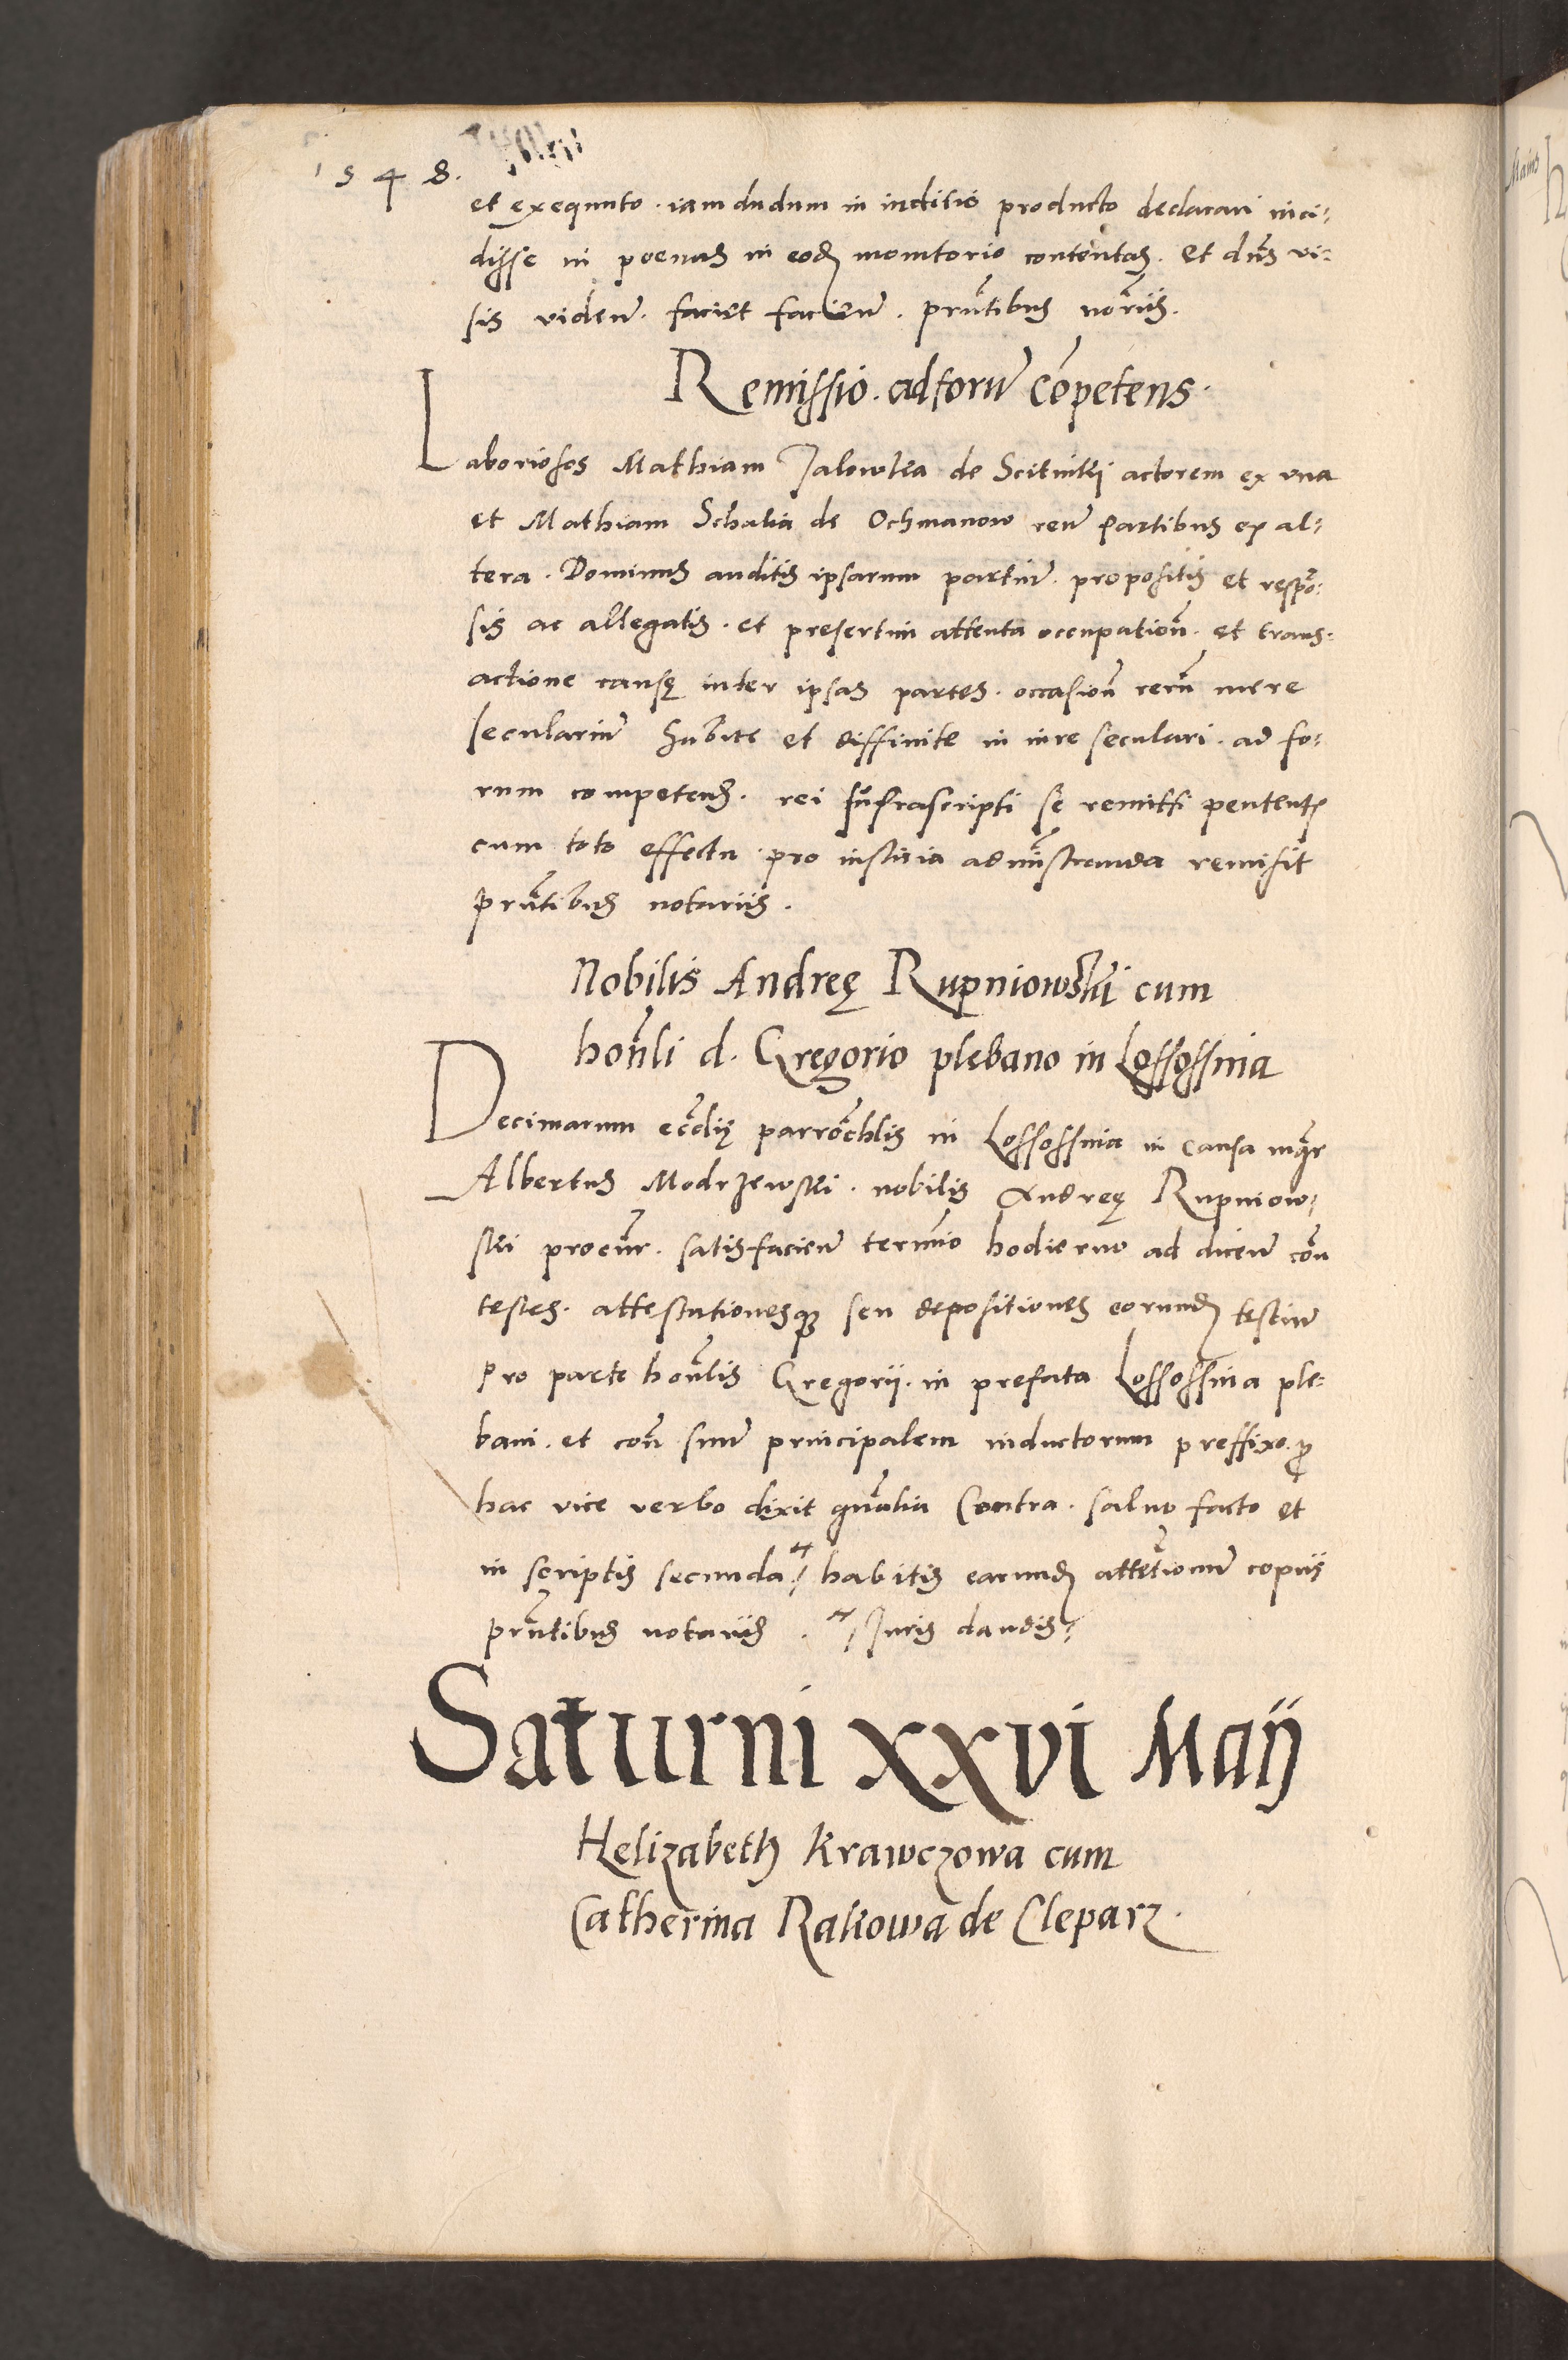 1548.
et exequuto. iam dudum in inditio producto declarari inci-
disse in poenas in eod monitorio contentas. et dns vi-
sis viden. faciet facien. pntibus noriis.
Remissio. ad forum competens.
Laboriosos Mathiam Jalowka de Scitniki actorem ex una
et Mathiam Schalia de Ochmanow reum partibus ex al-
tera. Dominus auditis ipsarum partium. propositis et respon-
sis ac allegatis. et presertim attenta occupation. et trans-
actione causę inter ipsas partes. occasion rerum mere
secularium habite et diffinite in iure seculari. ad fo-
rum competens. rei infrascripti se remitti petentes
cum toto effectu pro iustitia administranda remisit
pntibus notariis.
Nobilis Andreę Rupniowski cum
honli d. Gregorio plebano in Lossossina
Decimarum ecclię parrochlis in Lossossina in causa mgr
Albertus Modrzewski. nobilis Andreę Rupniow-
ski procur. satisfacien termino hodierno ad dicen con
testes. attestationesque seu depositiones eorund testium
pro parte honlis Gregorii. in prefata Lossossina ple-
bani. et con suum principalem inductorum preffixo. pro
hac vice verbo dixit gnalia contra. salvo facto et
in scriptis secunda habitis earund attetionum copiis
pntibus notariis. Iuris dandis
Saturni XXVI Maij
Helizabeth Krawczowa cum
Catherina Rakowa de Cleparz.
Maius